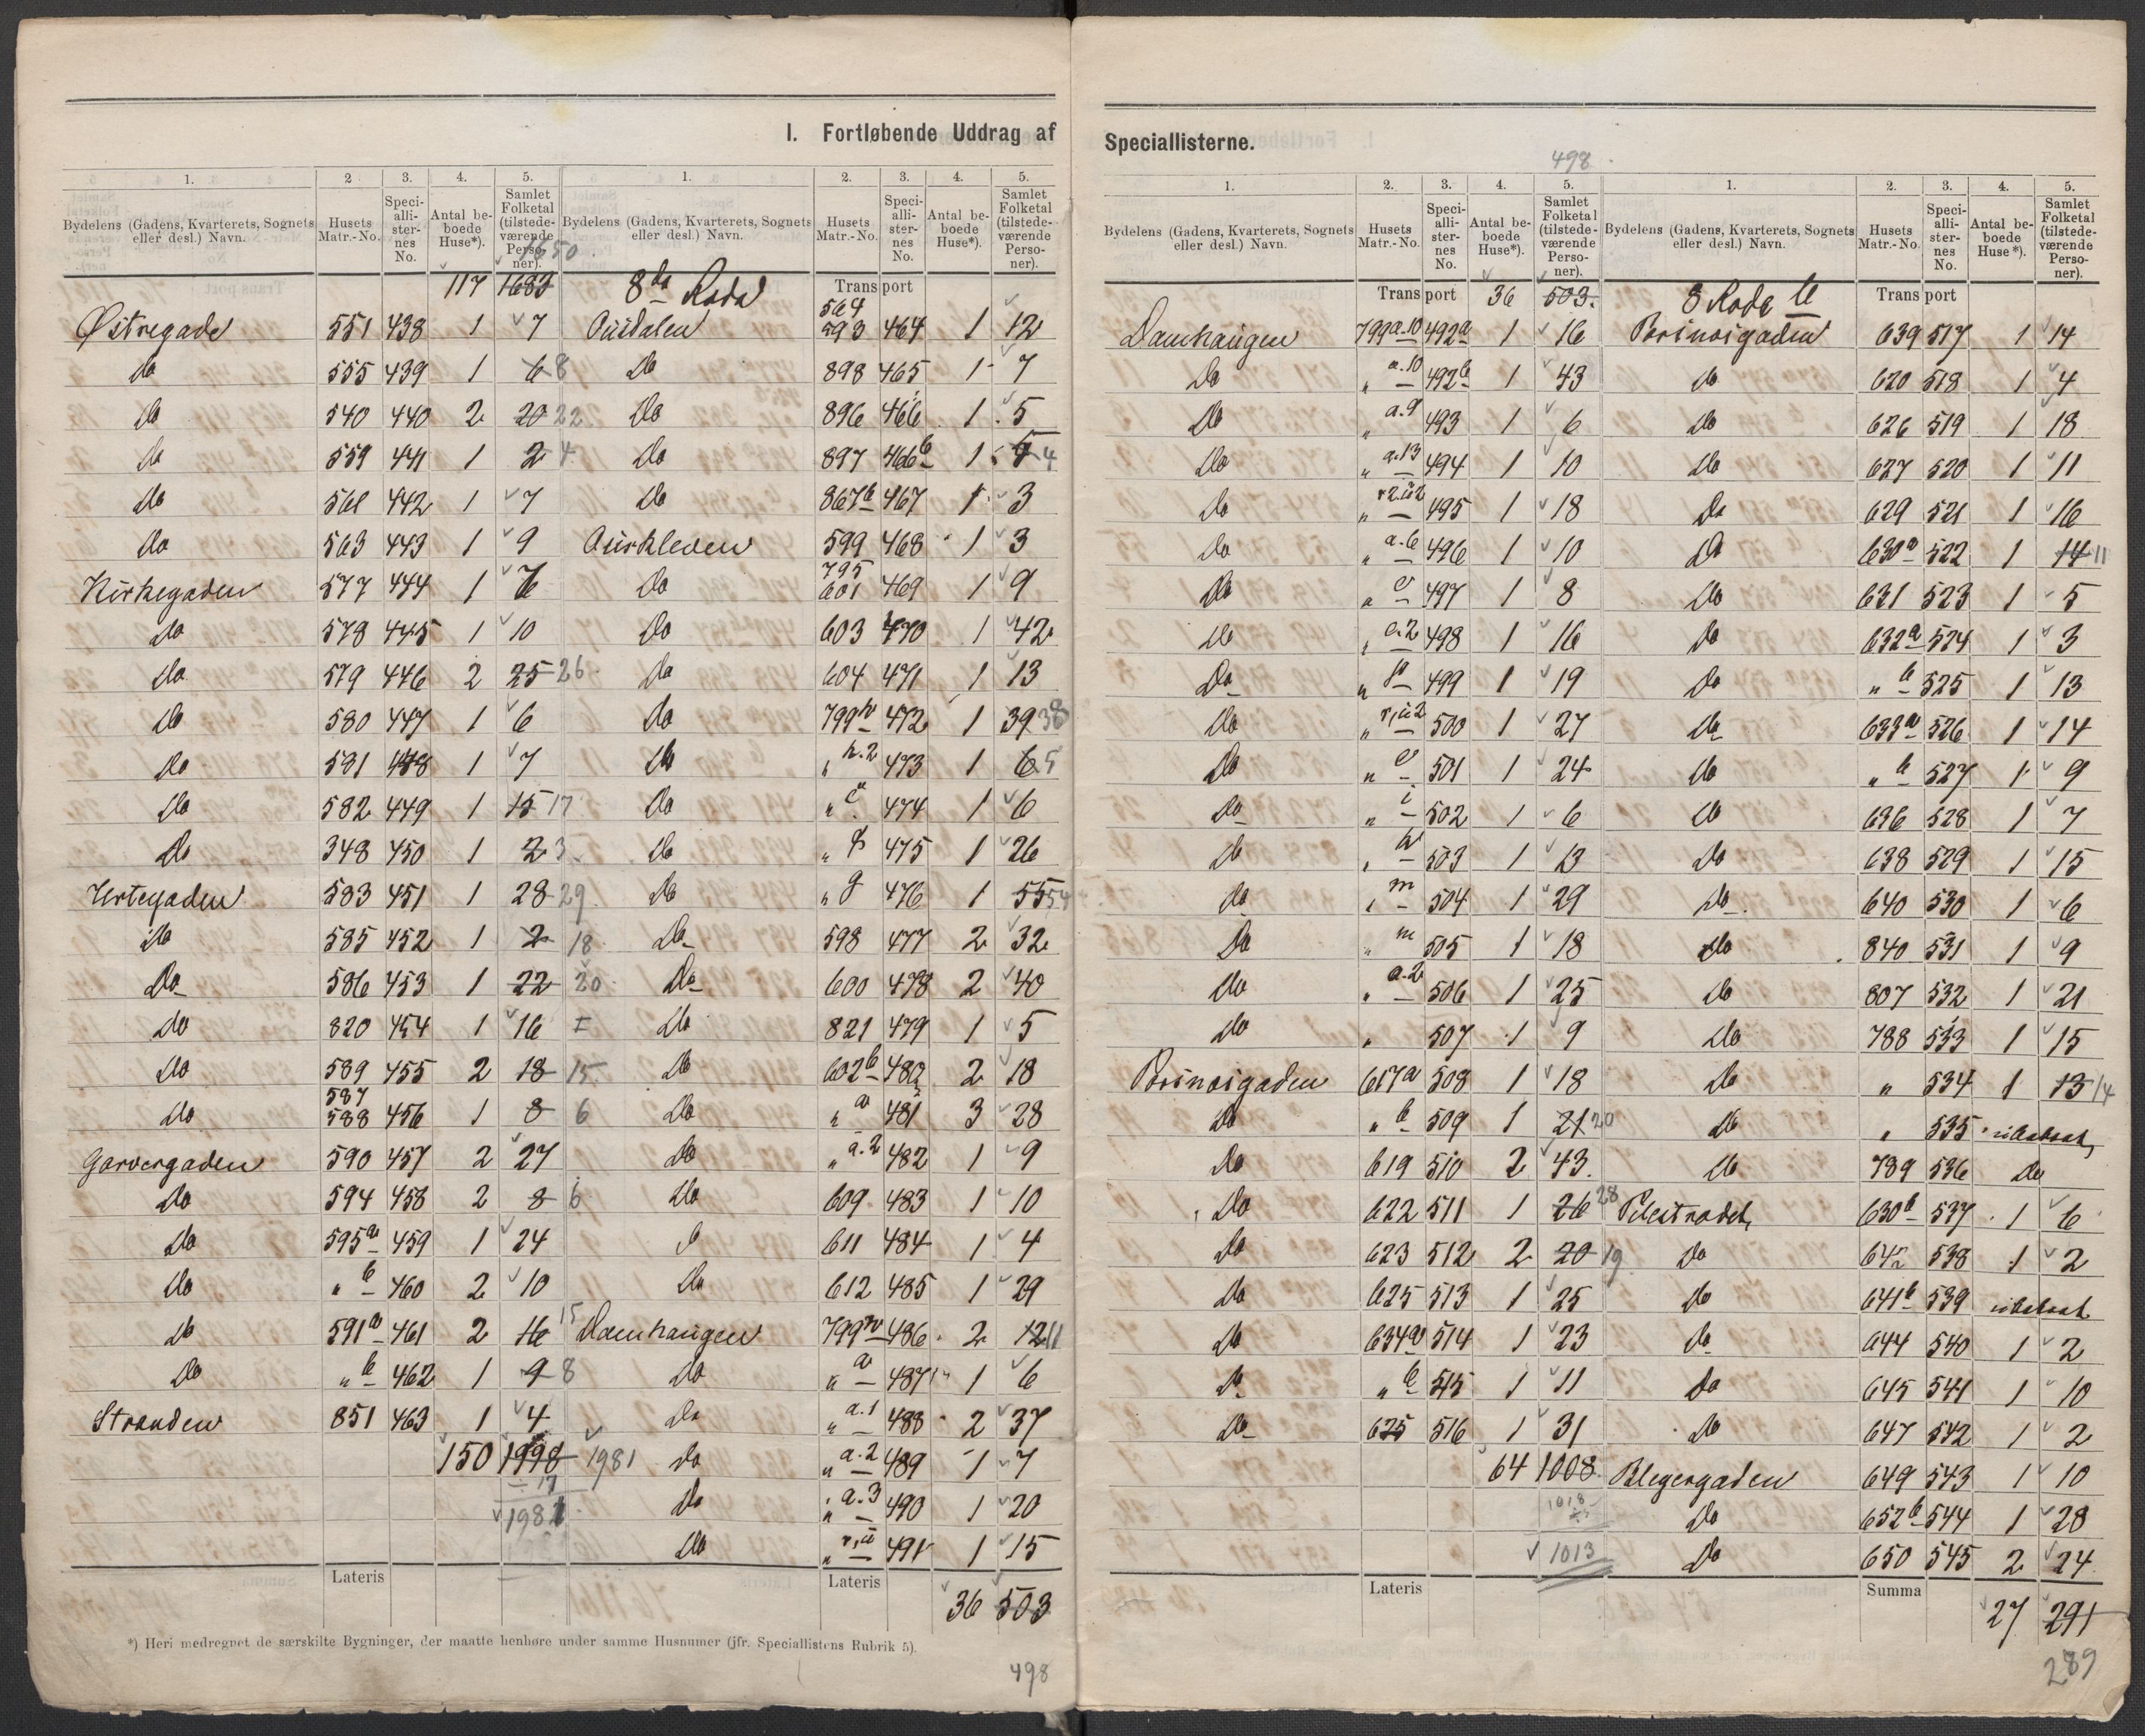 I. Fortløbende Uddrag af
1. 2 3. 4. 5.
Bydelens (Gadens, Kvarterets, Sognets eller desl.) Navn. Husets Matr.-No. Speciallisternes No. Antal beboede Huse*). Samlet Folketal (tilstedeværende Personer).
1650
117 1683
Østregade 551 438 1 7
do 555 439 1 6 8
do 540 440 2 20 22
do 559 441 1 2 4
do 561 442 1 7
do 563 443 1 9
Kirkegaden 577 444 1 6
do 578 445 1 10
do 579 446 2 25 26
do 580 447 1 6
do 581 448 1 7
do 582 449 1 15 17
do 348 450 1 2 3
Urtegaden 583 451 1 28 29
do 585 452 1 2 18
do 586 453 1 22 20
do 820 454 1 16
do 589 455 2 18 15
do 587 588 456 1 8 6
Garvergaden 590 457 2 27
do 594 458 2 8 6
do 595a 459 1 24
do " b 460 2 10
do 591a 461 2 16 15
do " b 462 1 9 8
Stranden 851 463 1 4
150 1998 1981
÷ 17
1981
Lateris
1. 2. 3. 4. 5.
Bydelens (Gadens, Kvarterets, Sognets eller desl.) Navn. Husets Matr.-No. Speciallisternes No. Antal beboede Huse*). Samlet Folketal (tilstedeværende Personer).
8da Rode Transport
564 593 464 1 12
do 898 465 1 7
do 896 466 1 5
do 897 466b 1 5 4
do 867b 467 1 3
Aurkleven 599 468 1 3
do 795 601 469 1 9
do 603 470 1 42
do 604 471 1 13
do 799h 472 1 39 38
do " h.2 473 1 6 5
do " 474 1 6
do " 475 1 26
do " g 476 1 55 54
do 598 477 2 32
do 600 478 2 40
do 821 479 1 5
do 602b 480 2 18
do " a 481 3 28
do " a.2 482 1 9
do 609 483 1 10
611 484 1 4
do 612 485 1 29
Damhaugen 799 486 2 12 11
do " a 487 1 6
do " a.1 488 2 37
do " a.2 489 1 7
do " a.3 490 1 20
do " 491 1 15
Lateris 36 503
*) Heri medregnet de særskilte Bygninger, der maatte henhøre under samme Husnumer (jfr. Speciallistens Rubrik 5).
498
Speciallisterne.
498
1. 2. 3. 4. 5.
Bydelens (Gadens, Kvarterets, Sognets eller desl.) Navn. Husets Matr.-No. Speciallisternes No. Antal beboede Huse*). Samlet Folketal (tilstedeværende Personer).
Transport 36 503
Damhaugen 799a.10 492a 1 16
do " a.10 492b 1 43
do " a.9 493 1 6
do " a.13 494 1 10
do " 495 1 18
do " a.6 496 1 10
do " e 497 1 8
do " e.2 498 1 16
do " 499 1 19
do " 500 1 27
do " 501 1 24
do " i 502 1 6
do " 503 1 13
do " m 504 1 29
do " m 505 1 18
do " a.2 506 1 25
do " 507 1 9
Prinsigaden 617a 508 1 18
do " b 509 1 21 20
do 619 510 2 43
do 622 511 1 26 28
do 623 512 2 20 19
do 625 513 1 25
do 634a 514 1 23
do " b 515 1 11
do 635 516 1 31
64 1008
1018
1013
Lateris
1. 2. 3. 4. 5.
Bydelens (Gadens, Kvarterets, Sognets eller desl.) Navn. Husets Matr.-No. Speciallisternes No. Antal beboede Huse*). Samlet Folketal (tilstedeværende Personer).
8 Rode b Transport
Prinsigaden 639 517 1 14
do 620 518 1 4
do 626 519 1 18
do 627 520 1 11
do 629 521 1 16
do 630a 522 1 14 11
do 631 523 1 5
do 632a 524 1 3
do " b 525 1 13
do 633a 526 1 14
do " b 527 1 9
do 636 528 1 7
do 638 529 1 15
do 640 530 1 6
do 840 531 1 9
do 807 532 1 21
do 788 533 1 15
do " 534 1 13 14
do " 535 ubeboet
do 789 536 do
Pilestrædet 630b 537 1 6
do 642 538 1 2
do 641b 539 ubeboet
do 644 540 1 2
do 645 541 1 10
do 647 542 1 2
Blegergaden 649 543 1 10
do 652b 544 1 28
do 650 545 2 24
Summa 27 291
289